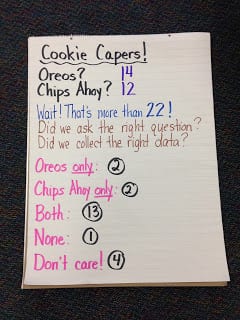 Cookie Capers!
Oreos? 14
Chips Ahoy? 12
Wait! That's more than 22!
Did we ask the right question?
Did we collect the right data?
Oreos only: 2
Chips Ahoy only: 2
Both: 13
None: 1
Don't care! 4